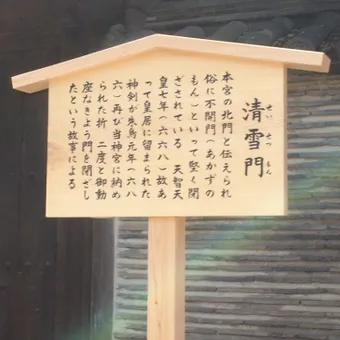 清雪門
せい せつ もん
本宮の北門と伝えられ
俗に不開門（あかずの
もん）といって堅く閉
ざされている 天智天
皇七年（六六八）故あ
って皇居に留まられた
神剣が朱鳥元年（六八
六）再び当神宮に納め
られた折 二度と御動
座なきよう門を閉ざし
たという故事による